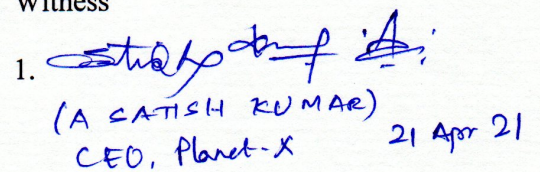 Witness
1.
(A SATISH KUMAR)
CEO, Planet-X 21 Apr 21